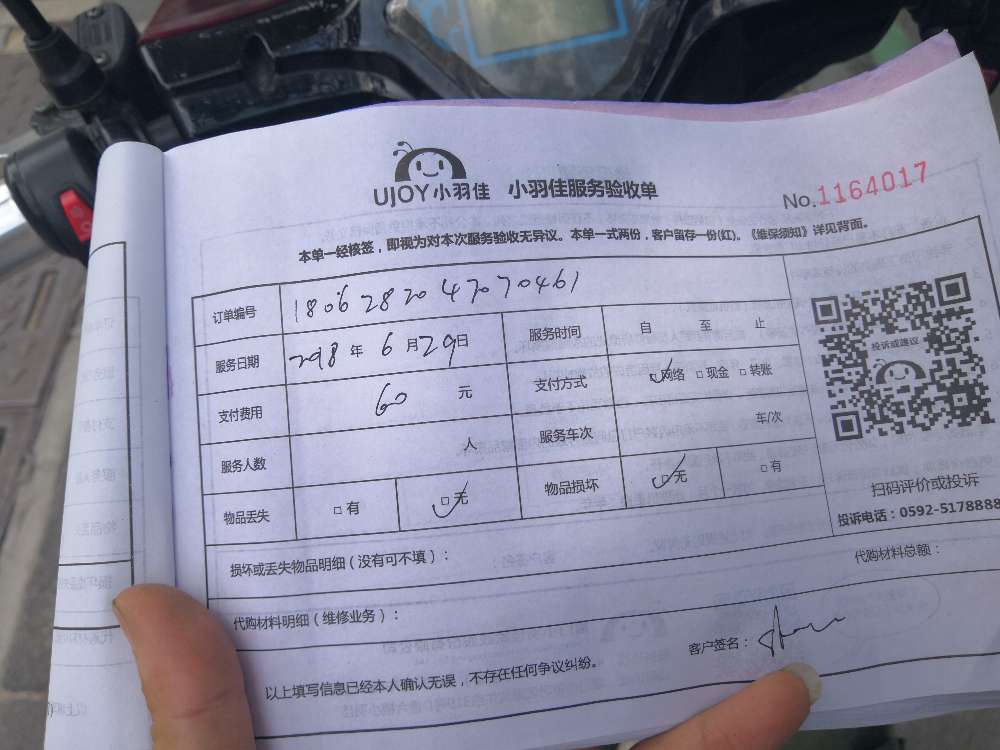 UJOY小羽佳 小羽佳服务验收单
No.1164017
本单一经核签，即视为对本次服务验收无异议。本单一式两份，客户留存一份(红)。《维保须知》详见背面。
订单编号 1806282047070461
服务日期 2018年6月29日 服务时间 自 至 止
支付费用 60 元 支付方式 网络 现金 转账
服务人数 人 服务车次 车/次
物品丢失 有 无 物品损坏 无 有
投诉或建议
扫码评价或投诉
投诉电话：0592-5178888
损坏或丢失物品明细（没有可不填）：
代购材料总额：
代购材料明细（维修业务）：
客户签名：
以上填写信息已经本人确认无误，不存在任何争议纠纷。